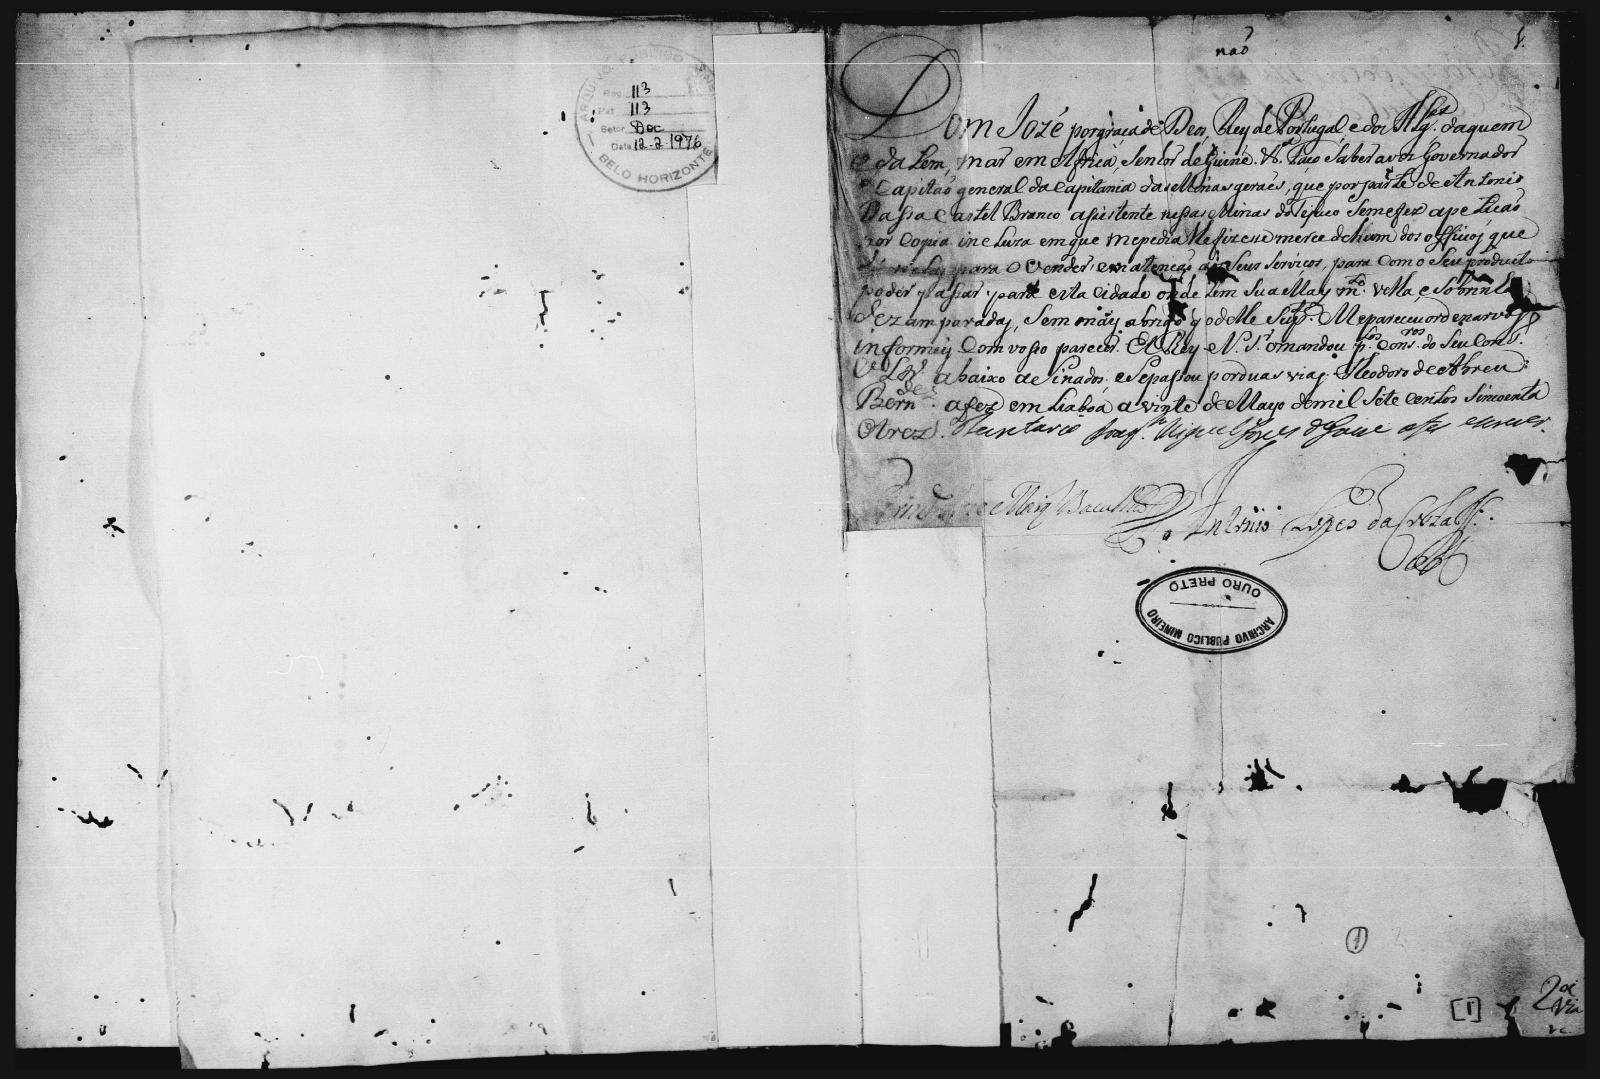 ARQUIVO PÚBLICO MINEIRO
Reg. 113
Pat. 113
Setor Doc
Data 12-2-1976
BELO HORIZONTE
não
1.
Dom José por graça de Deos, Rey de Portugal e dos Alg.ves daquem
e da lem, mar em Africa, Senhor de Guiné. &.ª Faço saber a vos Governador
e Capitaõ general da Capitania das Minas geraes, que por parte de Antonio
Castel Branco asistente nessas Minas do Tejuco Se me fez a petiçaõ
por Copia incluza em que me pedia lhe fizese merce de hum dos officios, que
para o vender, em atençaõ aos Seus Serviços, para com o Seu producto
poder passar para esta Cidade onde tem Sua May m.to velha, e Sobrinhas
dezamparadas, Sem mais abrigo q o delle Sup.te Me pareceu ordenarvos
informeis Com vosso parecer. El Rey N. S.r o mandou p.los Cons.ros do Seu Cons.º
Ultr.º abaixo asinados, e Se passou por duas vias. Theodoro de Abreu
Bern.des a fez em Lisboa a vinte de Mayo de mil Sete Centos Sincoenta
e tres. O Secretario Joaq.m Miguel Lopes de Lavre a fes escrever.
Antonio Lopes da Costa
ARCHIVO PUBLICO MINEIRO
OURO PRETO
1
[1]
2ª via